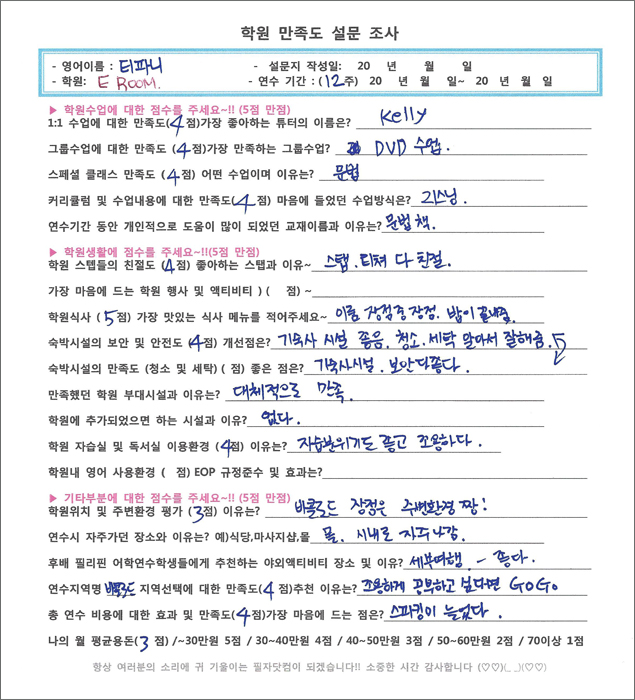 학원 만족도 설문 조사
- 영어이름 : 티파니 - 설문지 작성일: 20 년 월 일
- 학원: E ROOM. - 연수 기간 : (12주) 20 년 월 일~ 20 년 월 일
▶ 학원수업에 대한 점수를 주세요~!! (5점 만점)
1:1 수업에 대한 만족도(4점)가장 좋아하는 튜터의 이름은? Kelly
그룹수업에 대한 만족도 (4점)가장 만족하는 그룹수업? DVD 수업.
스페셜 클래스 만족도 (4점) 어떤 수업이며 이유는? 문법
커리큘럼 및 수업내용에 대한 만족도(4점) 마음에 들었던 수업방식은? 리스닝.
연수기간 동안 개인적으로 도움이 많이 되었던 교재이름과 이유는? 문법 책.
▶ 학원생활에 점수를 주세요~!!(5점 만점)
학원 스텝들의 친절도 (4점) 좋아하는 스탭과 이유~ 스탭. 티쳐 다 친절.
가장 마음에 드는 학원 행사 및 액티비티 ) ( 점) ~
학원식사 (5점) 가장 맛있는 식사 메뉴를 적어주세요~ 이룸 장점중 장점. 밥이 끝내줌.
숙박시설의 보안 및 안전도 (4점) 개선점은? 기숙사 시설 좋음. 청소. 세탁 알아서 잘해줌.
숙박시설의 만족도 (청소 및 세탁) ( 점) 좋은 점은? 기숙사시설. 보안다좋다.
만족했던 학원 부대시설과 이유는? 대체적으로 만족.
학원에 추가되었으면 하는 시설과 이유? 없다.
학원 자습실 및 독서실 이용환경 (4점) 이유는? 자습분위기도 좋고 조용하다.
학원내 영어 사용환경 ( 점) EOP 규정준수 및 효과는?
▶ 기타부분에 대한 점수를 주세요~!! (5점 만점)
학원위치 및 주변환경 평가 (3점) 이유는? 바콜로드 장점은 주변환경 짱!
연수시 자주가던 장소와 이유는? 예)식당,마사지샵,몰 몰. 시내로 자주나감.
후배 필리핀 어학연수학생들에게 추천하는 야외액티비티 장소 및 이유? 세부여행. - 좋다.
연수지역명 바콜로드 지역선택에 대한 만족도(4점)추천 이유는? 조용하게 공부하고 싶다면 GOGO
총 연수 비용에 대한 효과 및 만족도(4점)가장 마음에 드는 점은? 스피킹이 늘었다.
나의 월 평균용돈(3 점) /~30만원 5점 / 30~40만원 4점 / 40~50만원 3점 / 50~60만원 2점 / 70이상 1점
항상 여러분의 소리에 귀 기울이는 필자닷컴이 되겠습니다!! 소중한 시간 감사합니다 (♡♡)(_ _)(♡♡)